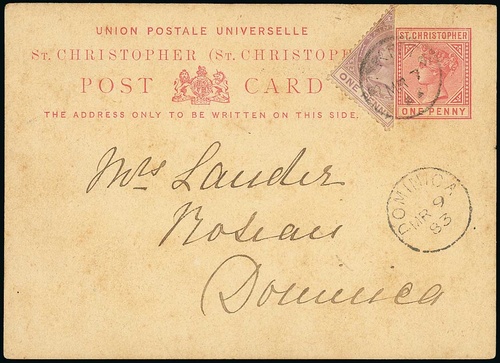 UNION POSTALE UNIVERSELLE
ST. CHRISTOPHER (ST. CHRISTOPH
POST CARD
THE ADDRESS ONLY TO BE WRITTEN ON THIS SIDE.
ONE PENNY
ST. CHRISTOPHER
ONE PENNY
Mrs Lauder
Roseau
Dominica
DOMINICA
MR 9
83